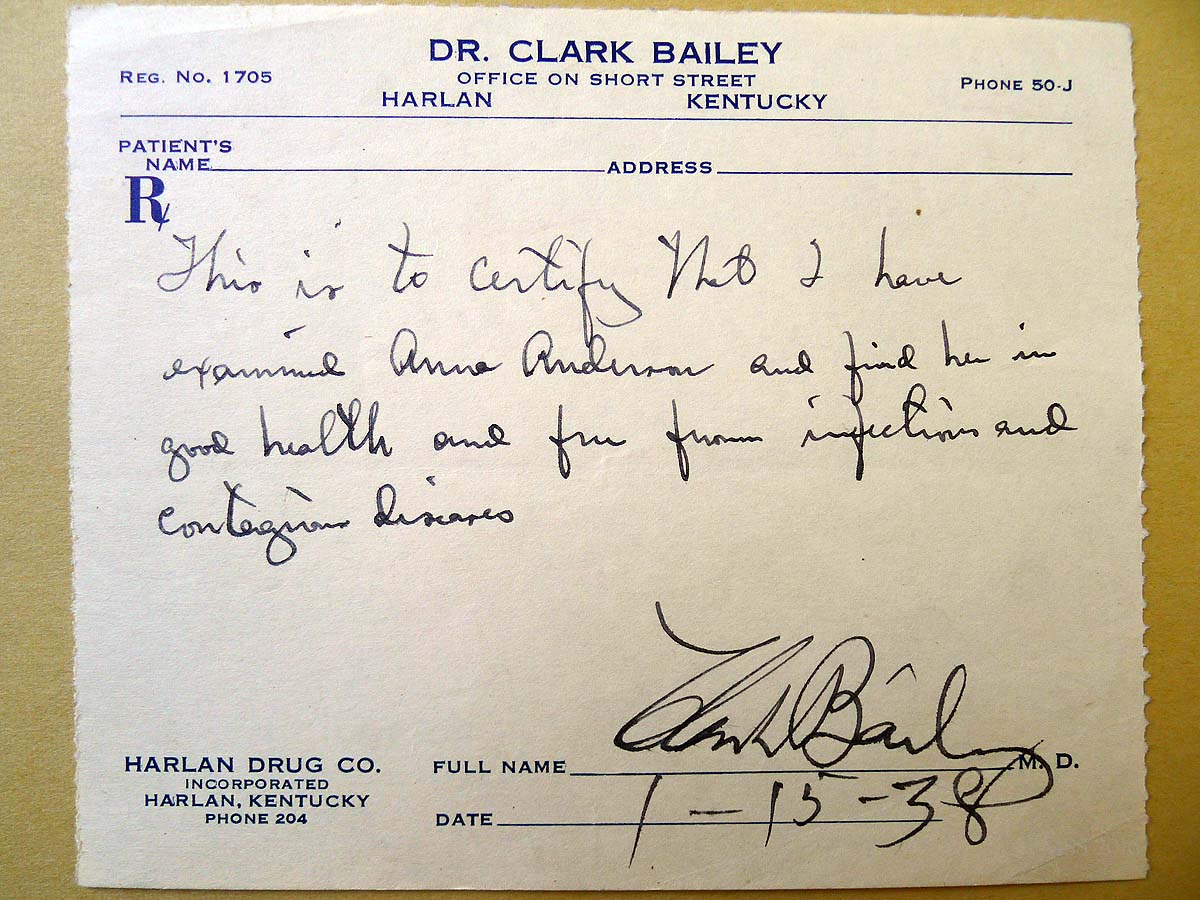 DR. CLARK BAILEY
REG. NO. 1705 OFFICE ON SHORT STREET PHONE 50-J
HARLAN KENTUCKY
PATIENT'S
NAME ADDRESS
Rx
This is to certify that I have
examined Anna Anderson and find her in
good health and free from infections and
contagious diseases
Clark Bailey
HARLAN DRUG CO.
INCORPORATED
HARLAN, KENTUCKY
PHONE 204
FULL NAME M. D.
DATE 1-15-38